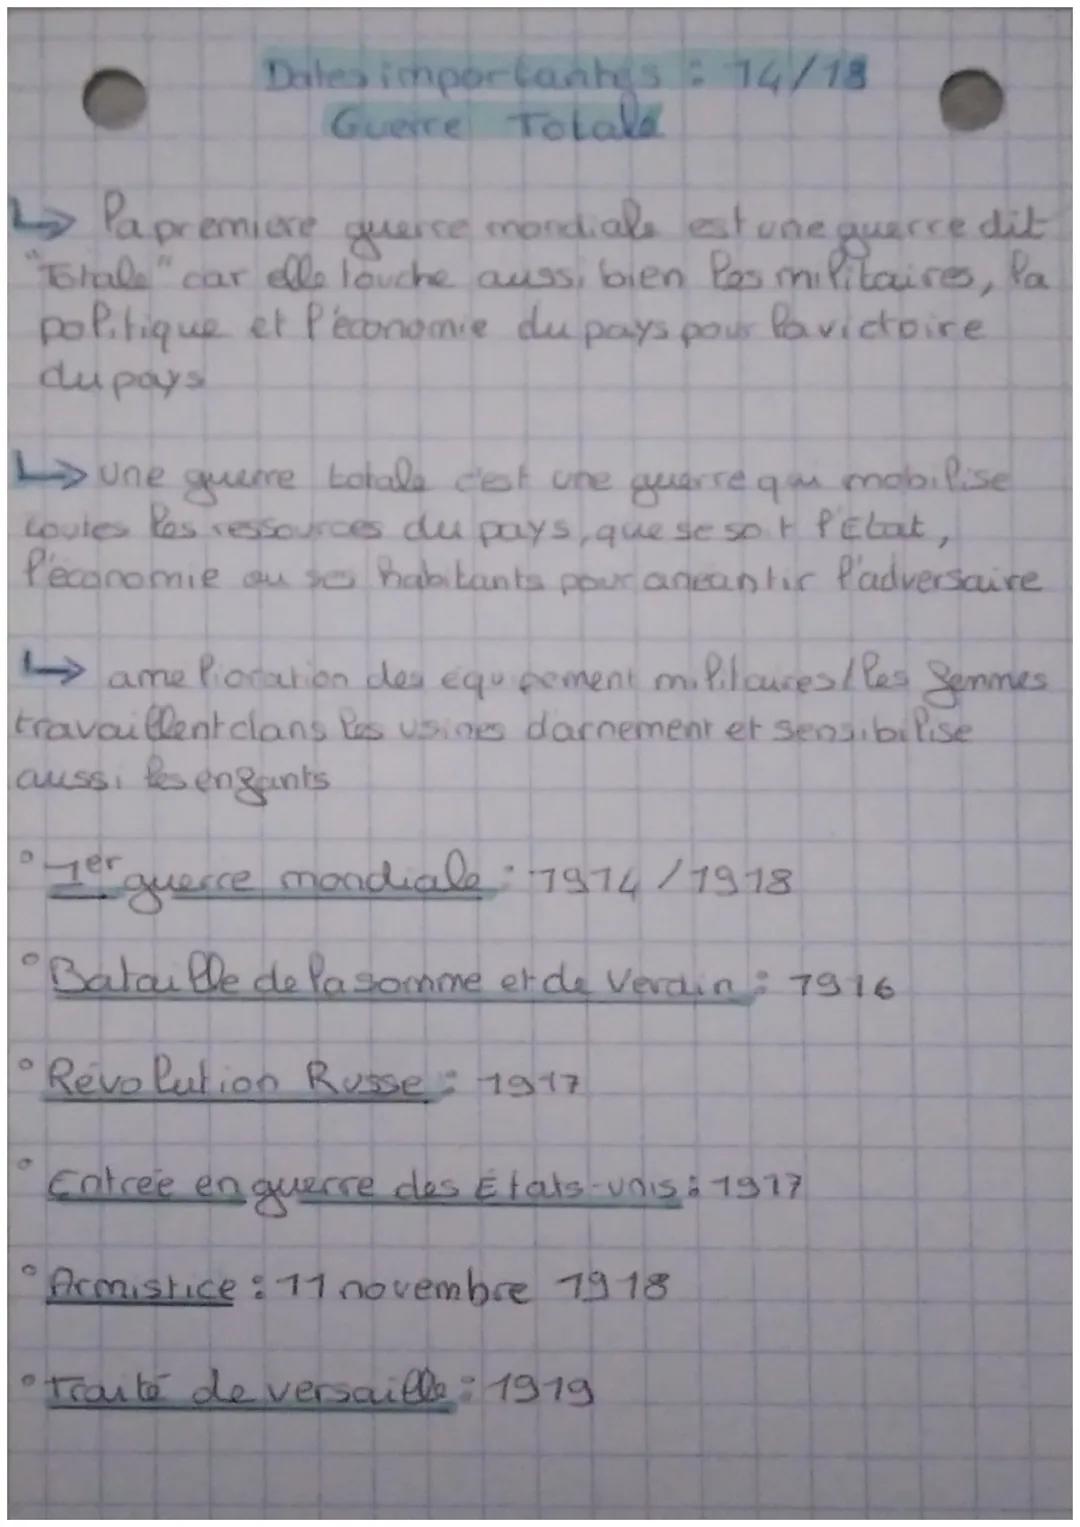 Dates importantes : 14/18
Guerre Totale
↳ La premiere guerre mondiale est une guerre dit
"Totale" car elle touche aussi bien les militaires, la
politique et l'économie du pays pour la victoire
du pays
↳ une guerre totale c'est une guerre qui mobilise
toutes les ressources du pays, que se soit l'Etat,
l'économie ou ses habitants pour aneantir l'adversaire
↳ amelioration des équipement militaires / les femmes
travaillent dans les usines d'arnement et sensibilise
aussi les enfants
° 1er guerre mondiale : 1914 / 1918
° Bataille de la somme et de Verdun : 1916
° Révolution Russe : 1917
° Entrée en guerre des États-unis : 1917
° Armistice : 11 novembre 1918
° Traité de versaille : 1919